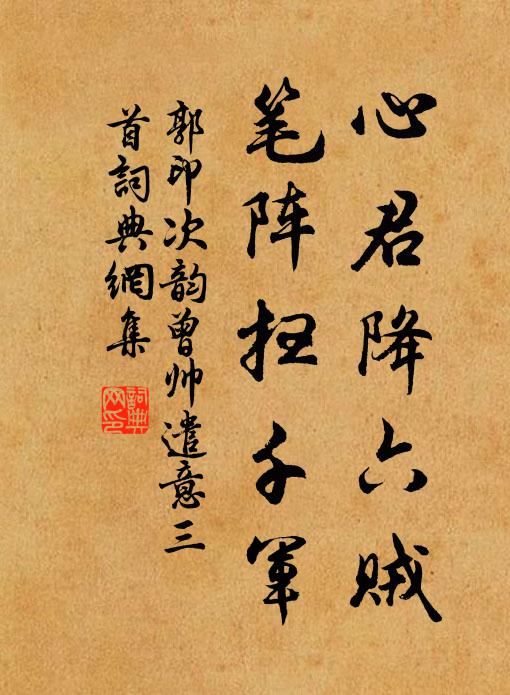 心君降六贼
笔阵扫千军
郭印次韵曾帅遣意三
首詞典網集
詞典
网印